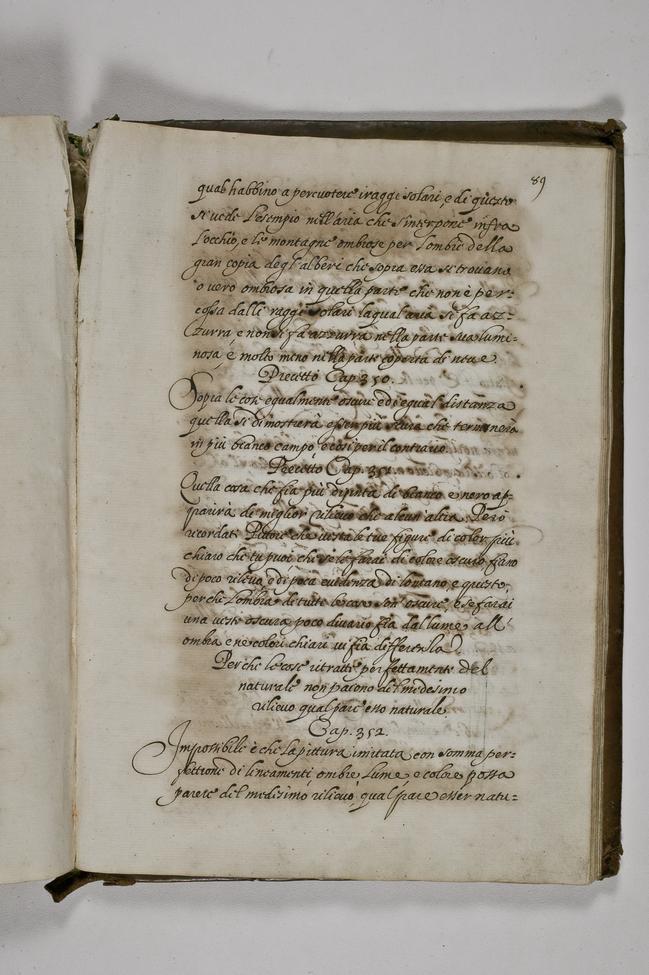 89
qual habbino a percuotere i raggi solari, e di questo
si uede l'esempio nell'aria che s'interpone infra
l'occhio, e le montagne ombrose per l'ombre della
gran copia degl'alberi che sopra essa si trouano
o uero ombrosa in quella parte che non è per=
cossa dalli raggi solari la qual aria si fa az=
zurra, e non si fa azzurra nella parte sua lumi=
nosa, è molto meno nella parte coperta di neue.
Precetto Cap. 350.
Sopra le cose egualmente oscure e di egual distanza
quella si dimostrerà esser più scura che terminerà
in più bianco campo, e così per il contrario.
Precetto Cap. 351.
Quella cosa che fia più dipinta di bianco e nero ap=
parirà di miglior rilieuo che alcun'altra. Però
ricordati Pittore che uesta le tue figure di color più
chiaro che tu puoi che se le farai di colore oscuro fiano
di poco rilieuo e di poca euidenza di lontano e questo,
perche l'ombra di tutte le cose son' oscure, e se farai
una ueste oscura poco diuario fia dal lume all'
ombra e ne colori chiari ui fia differenza.
Perche le cose ritratte perfettamente del
naturale non paiono del medesimo
rilieuo qual pare esso naturale
Cap. 352.
Impossibile è che la pittura imitata con somma per=
fettione di lineamenti, ombre lume e colore possa
parere del medesimo rilieuo, qual pare esser natu=